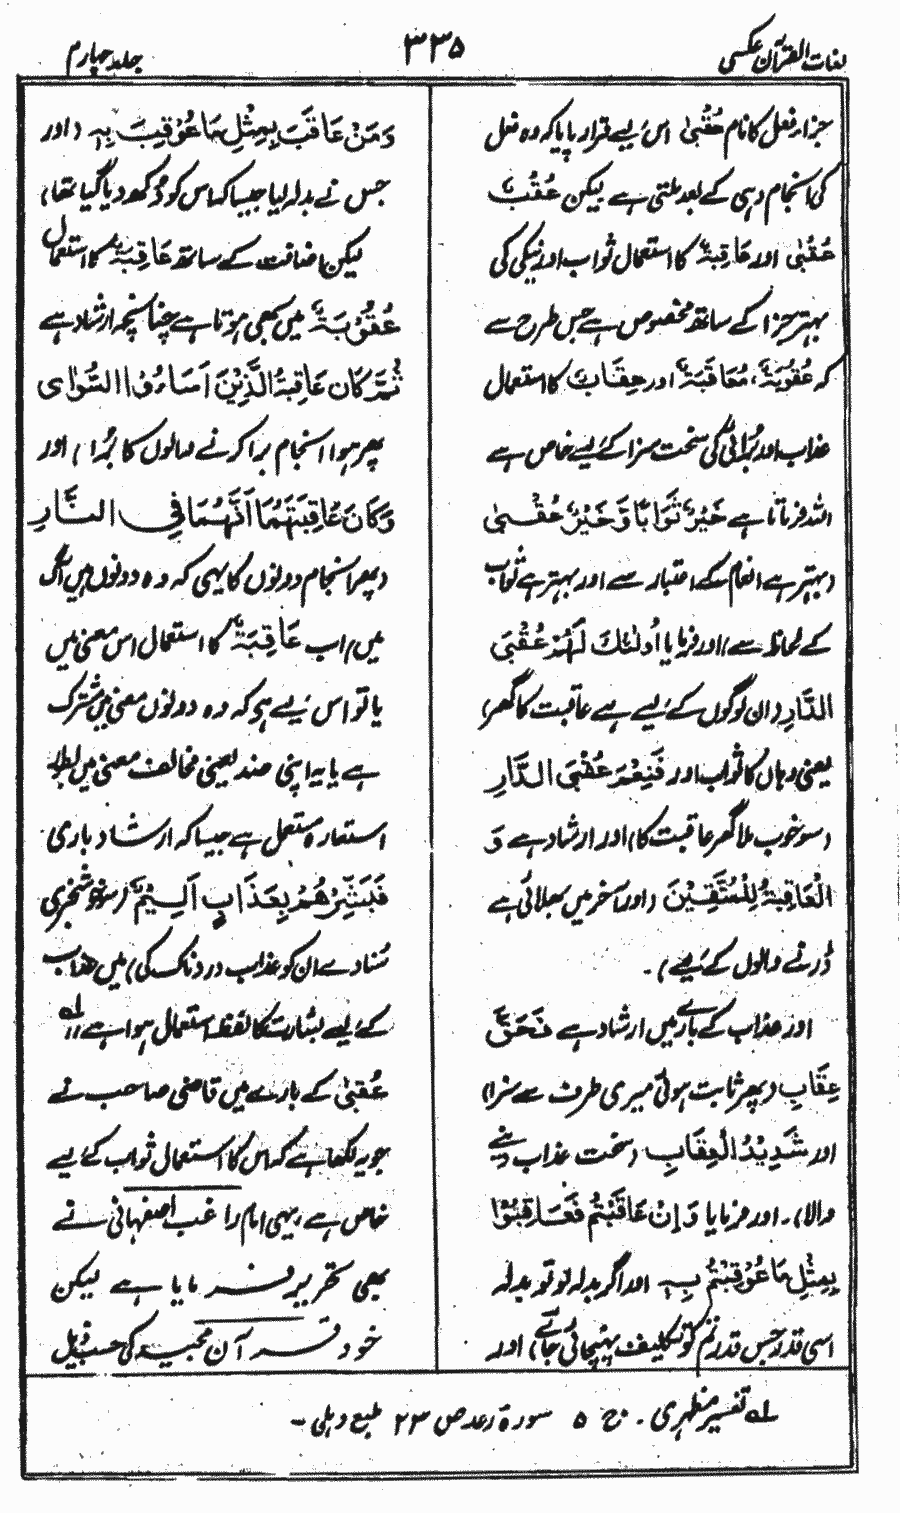 لغات القرآن عکسی
۳۳۵
جلد چہارم
جزار فعل کا نام عُقْبٰی اس لئے قرار پایا کہ وہ فعل
کی انجام دہی کے بعد ملتی ہے لیکن عُقُبٌ
عُقْبٰی اور عَاقِبَۃٌ کا استعمال ثواب اور نیکی کی
بہتر جزا کے ساتھ مخصوص ہے جس طرح سے
کہ عُقُوْبَۃٌ، مُعَاقَبَۃٌ اور عِقَابٌ کا استعمال
عذاب اور بُرائی کی سخت سزا کے لئے خاص ہے
اللہ فرماتا ہے خَیْرٌ ثَوَابًا وَّخَیْرٌ عُقْبٰی
(بہتر ہے انعام کے اعتبار سے اور بہتر ہے ثواب
کے لحاظ سے) اور فرمایا اُولٰئِکَ لَھُمْ عُقْبَی
الدَّارِ (ان لوگوں کے لئے ہے عاقبت کا گھر)
یعنی وہاں کا ثواب اور فَنِعْمَ عُقْبَی الدَّارِ
(سو خوب ملا گھر عاقبت کا) اور ارشاد ہے وَ
الْعَاقِبَۃُ لِلْمُتَّقِیْنَ (اور آخر میں بھلائی ہے
ڈرنے والوں کے لئے)۔
اور عذاب کے بارے میں ارشاد ہے فَحَقَّ
عِقَابِ (پھر ثابت ہوئی میری طرف سے سزا)
اور شَدِیْدُ الْعِقَابِ (سخت عذاب دینے
والا)۔ اور فرمایا وَ اِنْ عَاقَبْتُمْ فَعَاقِبُوْا
بِمِثْلِ مَا عُوْقِبْتُمْ بِہٖ اور اگر بدلہ لو تو بدلہ لو
اسی قدر جس قدر تم کو تکلیف پہنچائی جائے) اور
وَمَنْ عَاقَبَ بِمِثْلِ مَا عُوْقِبَ بِہٖ (اور
جس نے بدلہ لیا جیسا کہ اس کو دُکھ دیا گیا تھا)
لیکن اضافت کے ساتھ عَاقِبَۃٌ کا استعمال
عُقُوْبَۃٌ میں بھی ہوتا ہے چنانچہ ارشاد ہے
ثُمَّ کَانَ عَاقِبَۃُ الَّذِیْنَ اَسَاءُوا السُّوْاٰی
پھر ہوا انجام برا کرنے والوں کا بُرا) اور
وَکَانَ عَاقِبَتَھُمَا اَنَّھُمَا فِی النَّارِ
(پھر انجام دونوں کا یہی کہ وہ دونوں ہیں آگ
میں) اب عَاقِبَۃٌ کا استعمال اس معنی میں
یا تو اس لئے ہی کہ وہ دونوں معنی میں مشترک
ہے یا یہ اپنی ضد یعنی مخالف معنی میں بطور
استعارہ مستعمل ہے جیسا کہ ارشاد باری
فَبَشِّرْھُمْ بِعَذَابٍ اَلِیْمٍ (سو خوشخبری
سُنا دے ان کو عذاب دردناک کی) میں عذاب
کے لئے بشارت کا لفظ استعمال ہوا ہے ؂لہ
عُقْبٰی کے بارے میں قاضی صاحب نے
جو یہ لکھا ہے کہ اس کا استعمال ثواب کے لئے
خاص ہے، یہی امام راغب اصفہانی نے
بھی تحریر فرمایا ہے لیکن
خود قرآن مجید کی حسب ذیل
لہ تفسیر مظہری۔ ج ۵ سورۃ رعد ص ۲۳ طبع دہلی۔